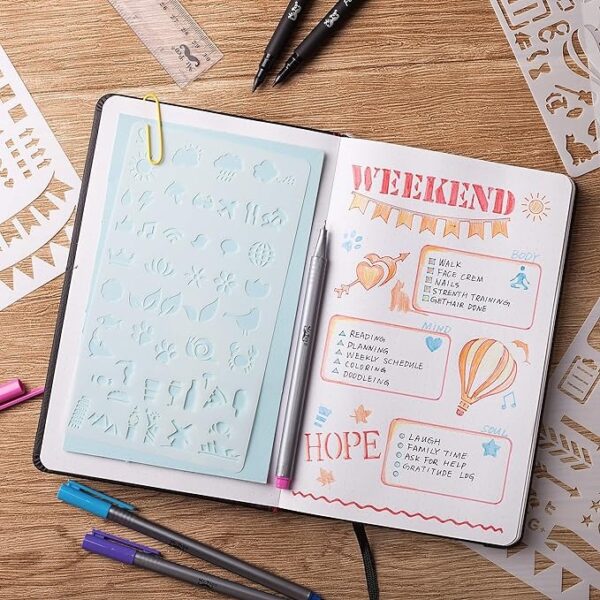 WEEKEND
BODY
WALK
FACE CREM
NAILS
STRENTH TRAINING
GETHAIR DONE
MIND
READING
PLANNING
WEEKLY SCHEDULE
COLORING
DOODLEING
SOUL
HOPE
LAUGH
FAMILY TIME
ASK FOR HELP
GRATITUDE LOG